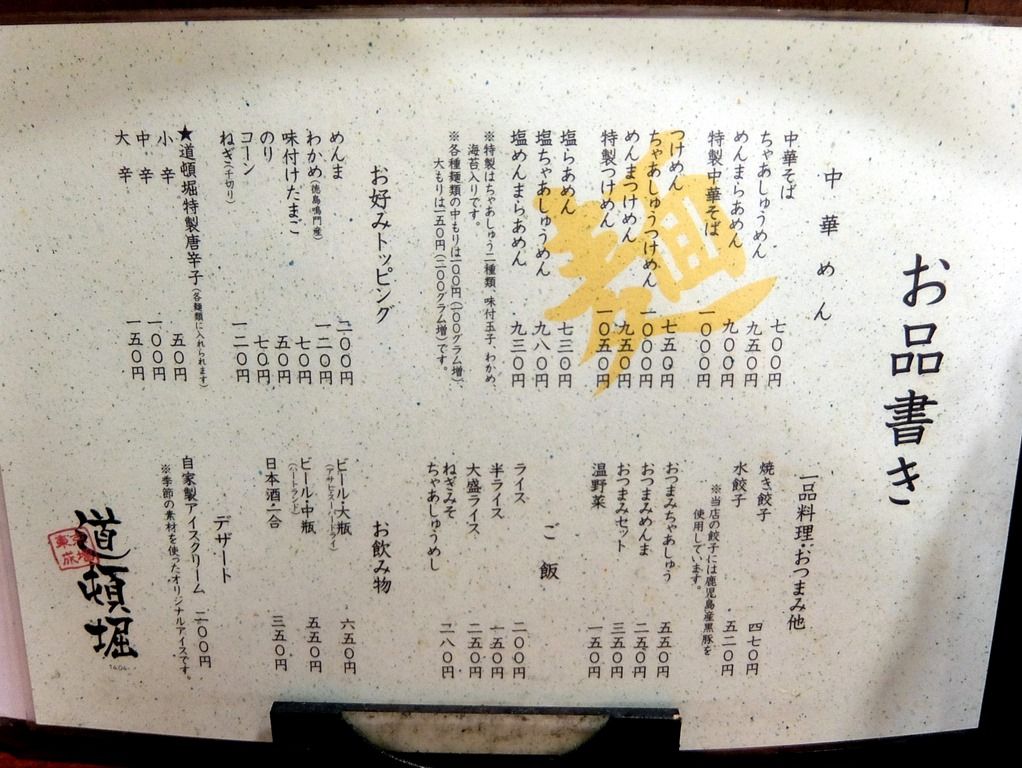 お品書き
中華めん
中華そば 七〇〇円
ちゃあしゅうめん 九五〇円
めんまらあめん 九〇〇円
特製中華そば 一〇〇〇円
つけめん 七五〇円
ちゃあしゅうつけめん 一〇〇〇円
めんまつけめん 九五〇円
特製つけめん 一〇五〇円
塩らあめん 七三〇円
塩ちゃあしゅうめん 九八〇円
塩めんまらあめん 九三〇円
※特製はちゃあしゅう二種類、味付玉子、わかめ、
海苔入りです。
※各種麺類の中もりは一〇〇円(一〇〇グラム増)、
大もりは一五〇円(二〇〇グラム増)です。
お好みトッピング
めんま 二〇〇円
わかめ(徳島鳴門産) 一二〇円
味付けたまご 七〇円
のり 五〇円
コーン 七〇円
ねぎ(千切り) 一二〇円
★道頓堀特製唐辛子(各麺類に入れられます)
小辛 五〇円
中辛 一〇〇円
大辛 一五〇円
一品料理・おつまみ他
焼き餃子 四七〇円
水餃子 五二〇円
※当店の餃子には鹿児島産黒豚を
使用しています。
おつまみちゃあしゅう 五五〇円
おつまみめんま 二五〇円
おつまみセット 三五〇円
温野菜 一五〇円
ご飯
ライス 二〇〇円
半ライス 一五〇円
大盛ライス 二五〇円
ねぎみそ
ちゃあしゅうめし 二八〇円
お飲み物
ビール大瓶 六五〇円
(アサヒスーパードライ)
ビール中瓶 五五〇円
(ハートランド)
日本酒一合 三五〇円
デザート
自家製アイスクリーム 二〇〇円
※季節の素材を使ったオリジナルアイスです。
道頓堀
麺